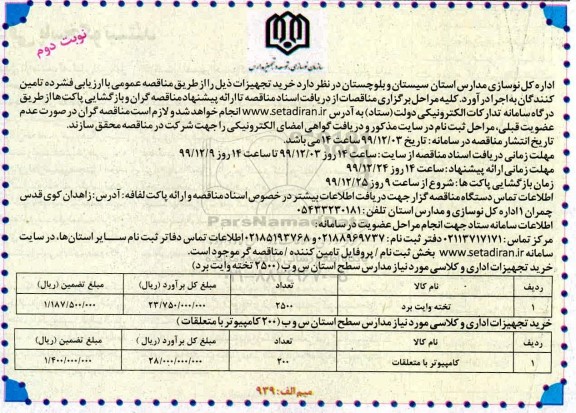 نوبت دوم
سازمان نوسازی، توسعه و تجهیز مدارس
اداره کل نوسازی مدارس استان سیستان و بلوچستان در نظر دارد خرید تجهیزات ذیل را از طریق مناقصه عمومی با ارزیابی فشرده تامین
کنندگان به اجرا درآورد. کلیه مراحل برگزاری مناقصات از دریافت اسناد مناقصه تا ارائه پیشنهاد مناقصه گران و بازگشایی پاکت ها از طریق
درگاه سامانه تدارکات الکترونیکی دولت (ستاد) به آدرس www.setadiran.ir انجام خواهد شد و لازم است مناقصه گران در صورت عدم
عضویت قبلی، مراحل ثبت نام در سایت مذکور و دریافت گواهی امضای الکترونیکی را جهت شرکت در مناقصه محقق سازند.
تاریخ انتشار مناقصه در سامانه : تاریخ ۹۹/۱۲/۰۳ ساعت ۱۴ می باشد.
مهلت زمانی دریافت اسناد مناقصه از سایت : ساعت ۱۴ روز ۹۹/۱۲/۰۳ تا ساعت ۱۴ روز ۹۹/۱۲/۹
مهلت زمانی ارائه پیشنهاد : ساعت ۱۴ روز ۹۹/۱۲/۲۴
زمان بازگشایی پاکت ها : شروع از ساعت ۹ روز ۹۹/۱۲/۲۵
اطلاعات تماس دستگاه مناقصه گزار جهت دریافت اطلاعات بیشتر در خصوص اسناد مناقصه و ارائه پاکت لفافه : آدرس : زاهدان کوی قدس
چمران ۱ اداره کل نوسازی و مدارس استان تلفن : ۰۵۴۳۳۲۳۰۱۸۱
اطلاعات سامانه ستاد جهت انجام مراحل عضویت در سامانه
مرکز تماس : ۰۲۱۱۳۷۱۷۱۷۱ دفتر ثبت نام : ۰۲۱۸۸۹۶۹۷۳۷ و ۰۲۱۸۵۱۹۳۷۶۸ اطلاعات تماس دفاتر ثبت نام سایر استان ها، در سایت
سامانه www.setadiran.ir بخش ثبت نام / پروفایل تامین کننده / مناقصه گر موجود است.
خرید تجهیزات اداری و کلاسی مورد نیاز مدارس سطح استان س و ب (۲۵۰۰ تخته وایت برد)
ردیف نام کالا تعداد مبلغ کل برآورد (ریال) مبلغ تضمین (ریال)
۱ تخته وایت برد ۲۵۰۰ ۲۳/۷۵۰/۰۰۰/۰۰۰ ۱/۱۸۷/۵۰۰/۰۰۰
خرید تجهیزات اداری و کلاسی مورد نیاز مدارس سطح استان س و ب (۲۰۰ کامپیوتر با متعلقات)
ردیف نام کالا تعداد مبلغ کل برآورد (ریال) مبلغ تضمین (ریال)
۱ کامپیوتر با متعلقات ۲۰۰ ۲۸/۰۰۰/۰۰۰/۰۰۰ ۱/۴۰۰/۰۰۰/۰۰۰
میم الف : ۹۳۹